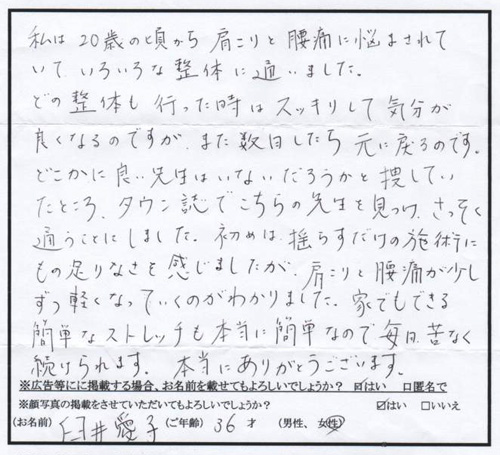 私は20歳の頃から肩こりと腰痛に悩まされて
いて、いろいろな整体に通いました。
どの整体も行った時はスッキリして気分が
良くなるのですが、また数日したら元に戻るのです。
どこかに良い先生はいないだろうかと捜してい
たところ、タウン誌でこちらの先生を見つけ、さっそく
通うことにしました。初めは、揺らすだけの施術に
もの足りなさを感じましたが、肩こりと腰痛が少し
ずつ軽くなっていくのがわかりました。家でもできる
簡単なストレッチも本当に簡単なので毎日、苦なく
続けられます。本当にありがとうございます。
※広告等にに掲載する場合、お名前を載せてもよろしいでしょうか？ ☑はい □匿名で
※顔写真の掲載をさせていただいてもよろしいでしょうか？ ☑はい □いいえ
(お名前) 臼井愛子 (ご年齢) 36 才 (男性、女性)